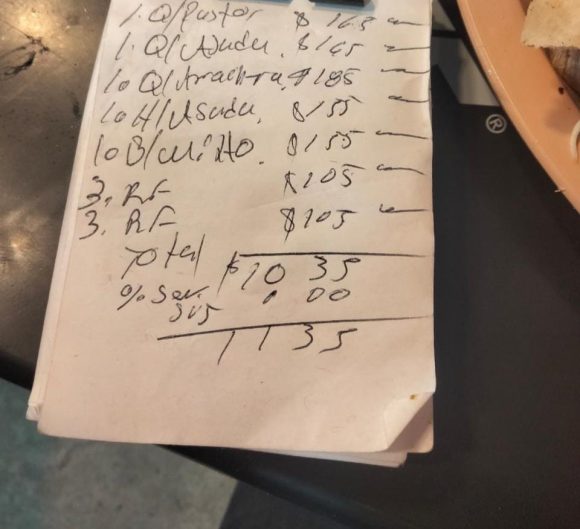 1. Q/Pastor $165
1. Q/Asada. $165
1o Q/Arrachera, $185
1o H/Asada, $155
1o B/Mixto. $155
3. RF $105
3. RF $105
Total $1035
% Ser. 100
1135
®